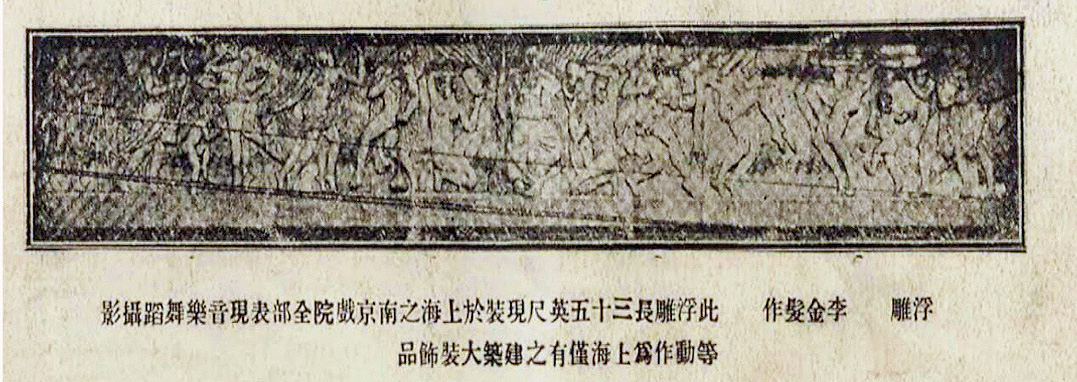 浮雕　李金髮作　此浮雕長三十五英尺現裝於上海之南京戲院全部表現音樂舞蹈攝影
等動作爲上海僅有之建築大裝飾品